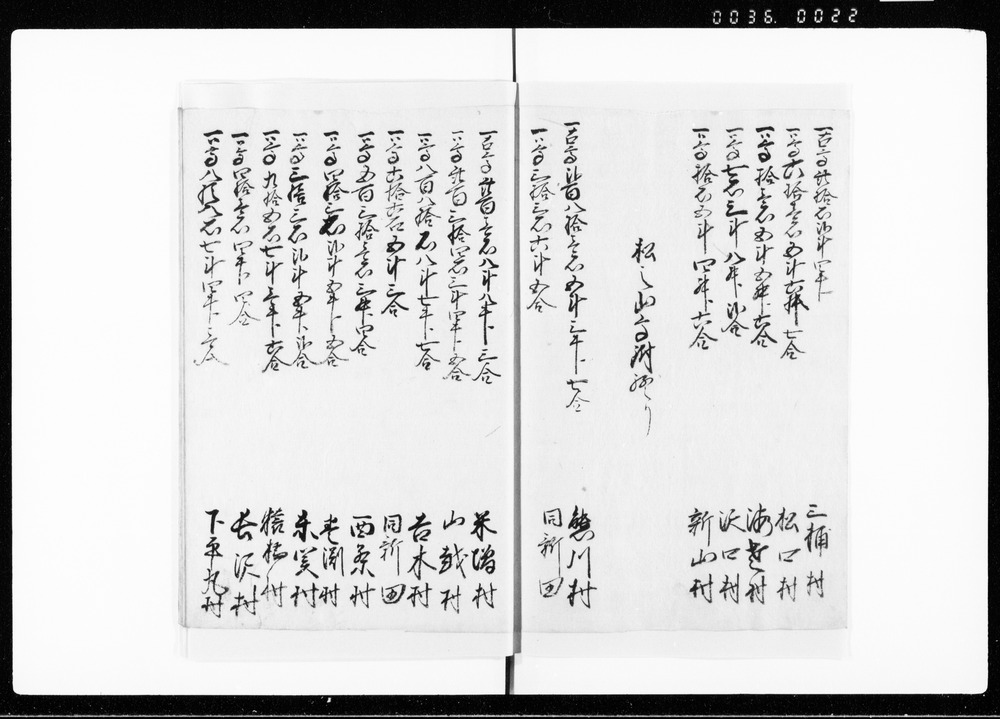 0036. 0022
一高弐拾石 三桶村
一高六拾壱石五斗六升七合 松口村
一高拾壱石五斗五升六合 海老村
一高七石三斗八升弐合 沢口村
一高拾石五斗四升六合 新山村
松之山
一高弐百八拾壱石五斗三升七合 熊川村
一高三拾三石六斗五合 同新田
一高弐百壱石八斗八升三合 米増村
一高弐百三拾四石三斗四升五合 山越村
一高八百八拾石八斗七升七合 吉木村
一高六拾六石五斗三合 同新田
一高五百三拾壱石三升四合 西条村
一高四拾三石弐斗五升五合 老渕村
一高三拾三石弐斗五升弐合 東関村
一高九拾五石七斗三升六合 猪橋村
一高四拾壱石四升四合 長沢村
一高八拾八石七斗四升 下平丸村